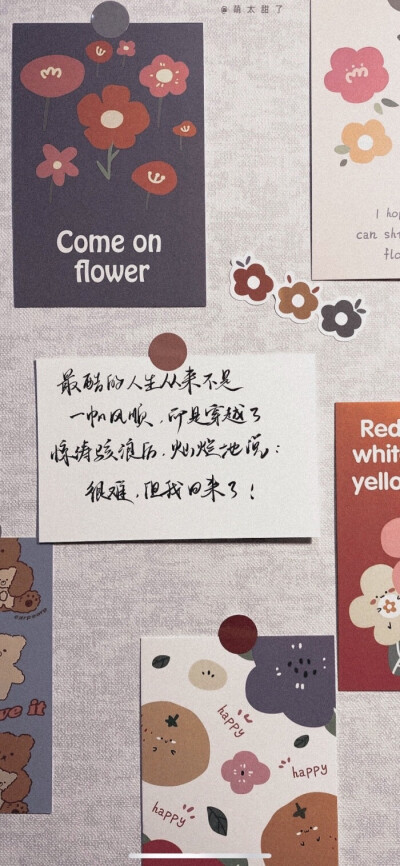 @萌太甜了
Come on
flower
I hop
can shi
flo
最酷的人生从来不是
一帆风顺，而是穿越了
惊涛骇浪后，灿烂地说：
很难，但我回来了！
Red
white
yello
carpcarp
ve it
happy
happy
happy